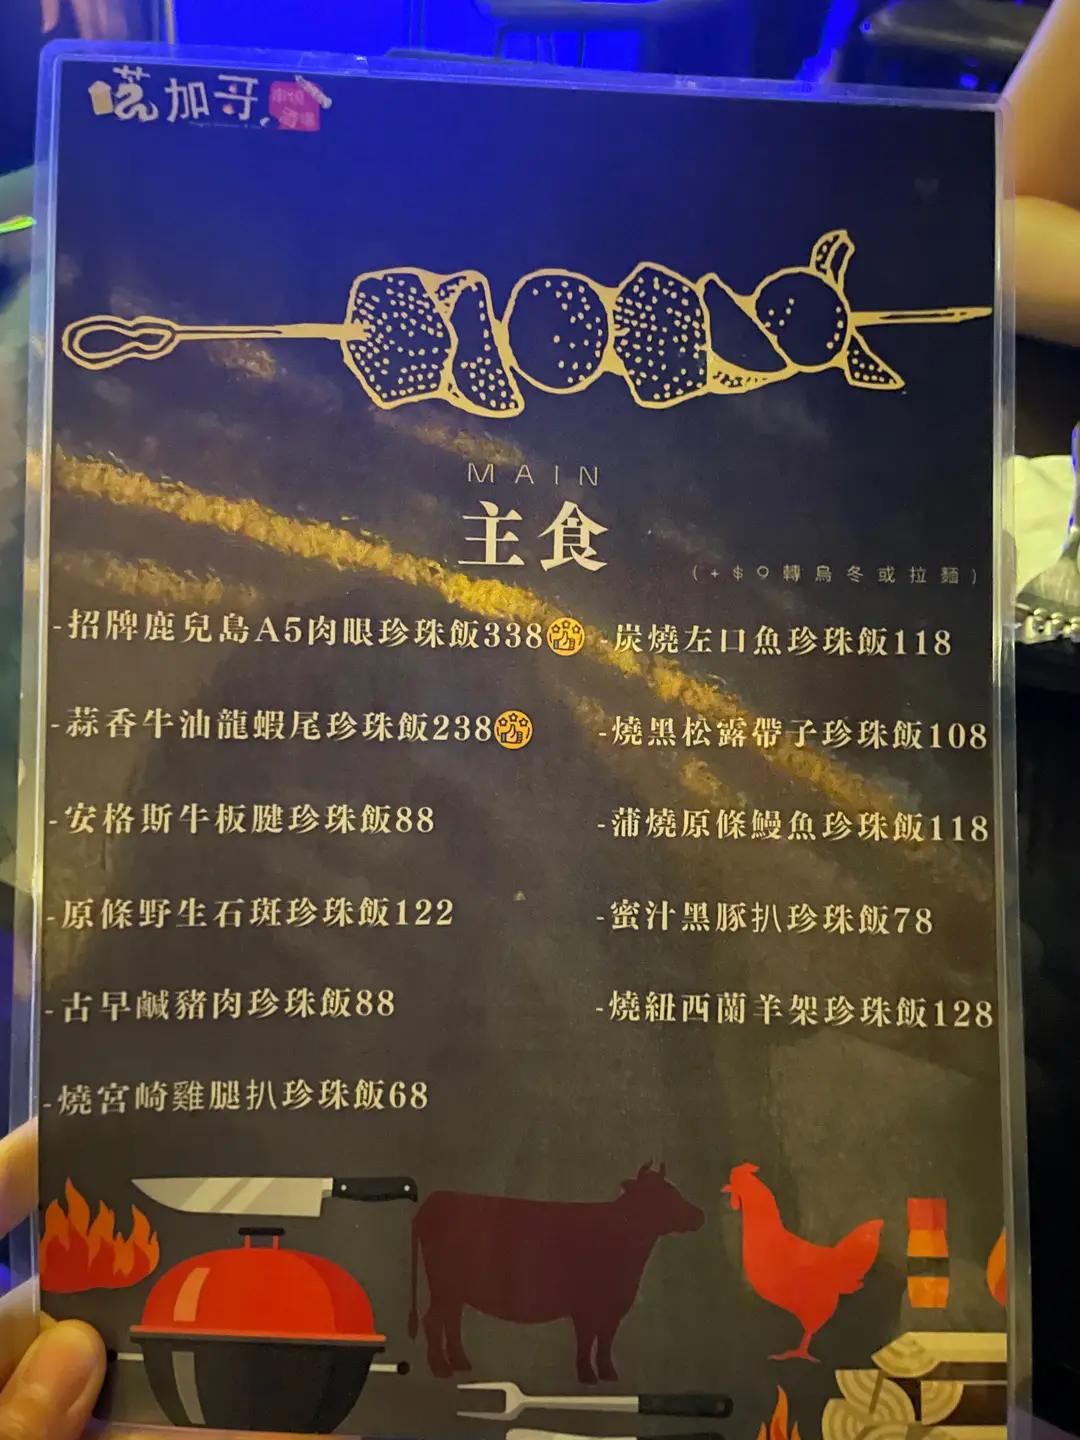 加哥
MAIN
主食
(+$9轉烏冬或拉麵)
-招牌鹿兒島A5肉眼珍珠飯338
-蒜香牛油龍蝦尾珍珠飯238
-安格斯牛板腱珍珠飯88
-原條野生石斑珍珠飯122
-古早鹹豬肉珍珠飯88
-燒宮崎雞腿扒珍珠飯68
-炭燒左口魚珍珠飯118
-燒黑松露帶子珍珠飯108
-蒲燒原條鰻魚珍珠飯118
-蜜汁黑豚扒珍珠飯78
-燒紐西蘭羊架珍珠飯128